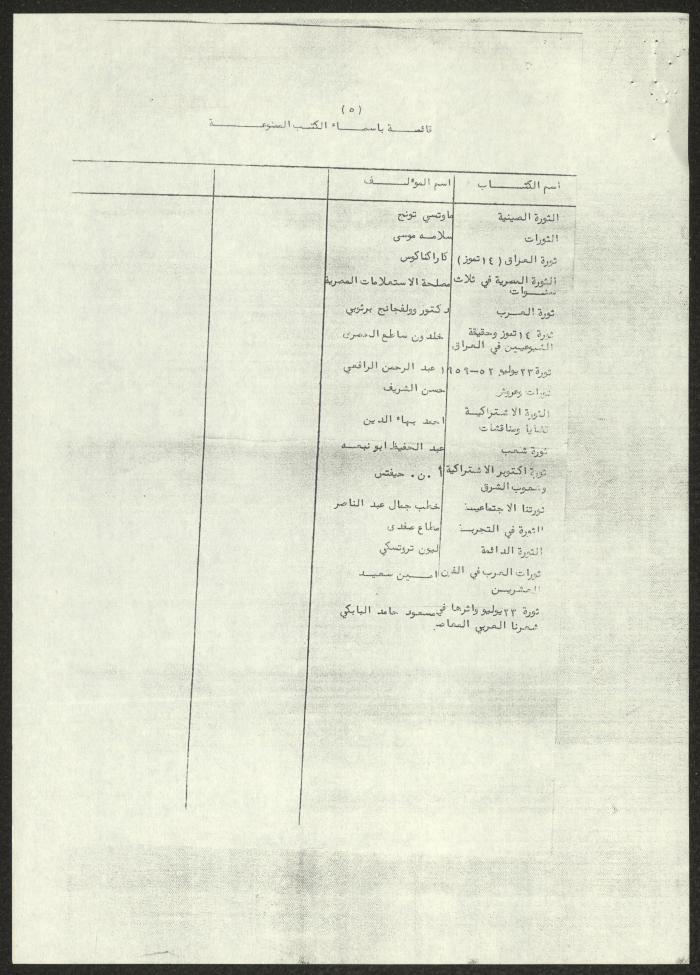 ( ٥ )
قائمة باسماء الكتب الممنوعة
اسم الكتاب اسم المؤلف
الثورة الصينية ماوتسي تونج
الثورات سلامه موسى
ثورة العراق ( ١٤ تموز ) كاراكتاكوس
الثورة المصرية في ثلاث سنوات مصلحة الاستعلامات المصرية
ثورة العرب دكتور وولفجانج برتوبي
ثورة ١٤ تموز وحقيقة الشيوعيين في العراق خلدون ساطع الحصرى
ثورة ٢٣ يوليو ٥٢-١٩٥٩ عبد الرحمن الرافعي
ثورات وعروش حسن الشريف
الثورة الاشتراكية قضايا ومناقشات احمد بهاء الدين
ثورة شعب عبد الحفيظ ابو نبعه
ثورة اكتوبر الاشتراكية وشعوب الشرق ن. حيفتس
ثورتنا الاجتماعية خطب جمال عبد الناصر
الثورة في التجربة مطاع صفدى
الثورة الدائمة ليون تروتسكي
ثورات العرب في القرن العشرين امين سعيد
ثورة ٢٣ يوليو واثرها في شعرنا العربي المعاصر مسعود حامد البابكي